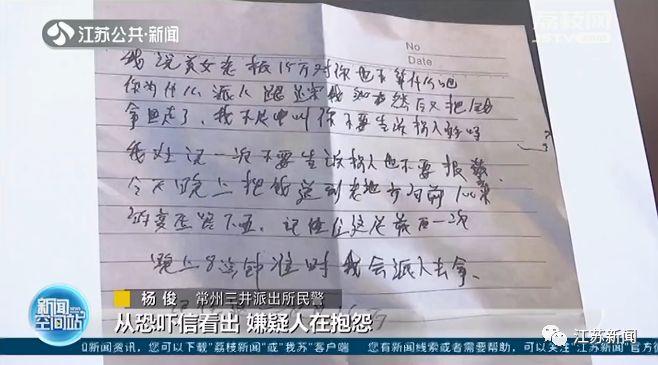 江苏公共·新闻
荔枝网
JSTV.com
No
Date
我说美女老板15万对你也不算什么吧
你为什么派人跟
拿回走了、我不是叫你不要告诉別人好吗
我在说一次不要告诉别人也不要报警
今天晚上把钱送到老地方向前100米
下面。记住这是最后一次
晚上8点钟准时我会派人去拿.
新闻
空间站
杨俊 常州三井派出所民警
从恐吓信看出 嫌疑人在抱怨
江苏新闻
新闻资讯，您可以下载“荔枝新闻”或“我苏”客户端 您有新闻线索或者需要帮助，可以关注“江苏新闻”官方微